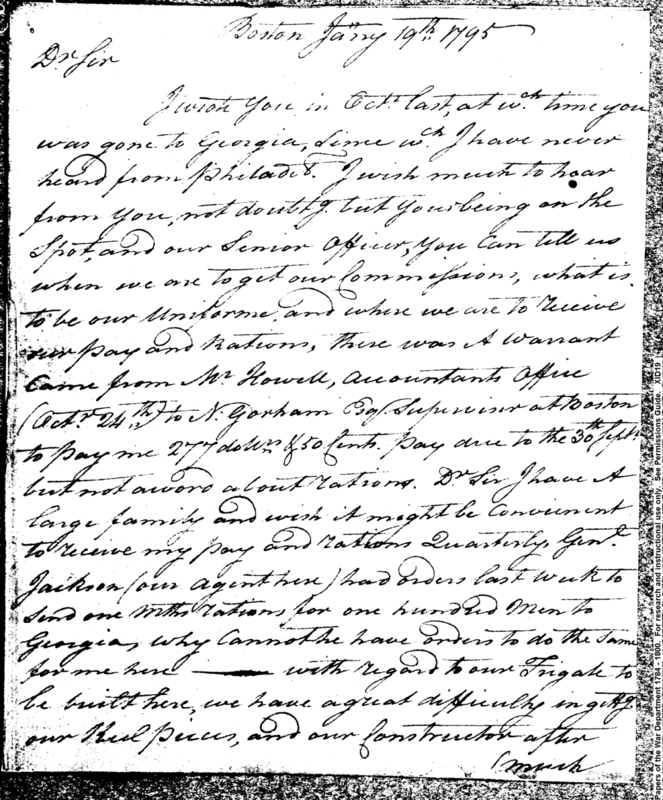 Boston Jany 19th 1795
Dr Sir
I wrote You in Octr last, at wch time you
was gone to Georgia, Since wch I have never
heard from Philada. I wish much to hear
from You, not doubtg but Your being on the
Spot, and our Senior Officer, You Can tell us
when we are to get our Commissions, what is
to be our Uniforme, and where we are to receive
our pay and Rations, there was A Warrant
Came from Mr Howell, Accountants Office
(Octr 24th) to N. Gorham Esqr. Supervisor at Boston
to pay me 277 dollrs & 50 Cents. pay due to the 30th Septr
but not a word about rations. Dr Sir I have A
large family and wish it might be Convienent
to receive my pay and rations Quarterly, Genl
Jackson (our Agent here) had orders last week to
Send one Mths rations for one hundred Men to
Georgia, why Cannot he have orders to do the Same
for me here — with regard to our Frigate to
be built here, we have a great difficulty in gettg
our Keel pieces, and our Constructor after
(much
Papers of the War Department 1784 - 1800. For research and instructional use only. See Permissions Guide. XID19